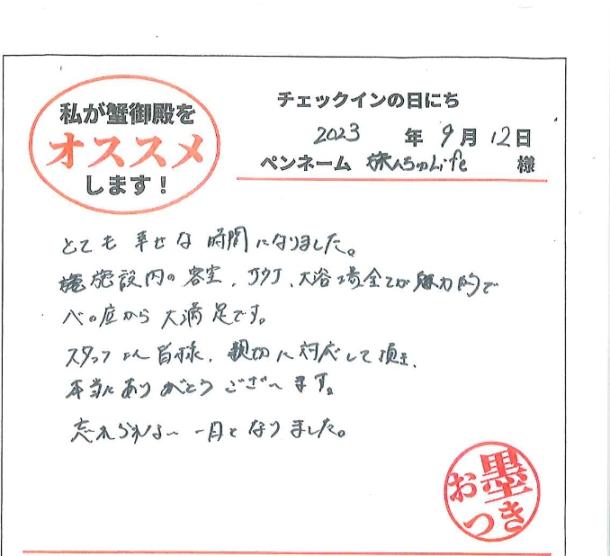 私が蟹御殿を
オススメ
します！
チェックインの日にち
2023 年 9月 12日
ペンネーム 様
とても 幸せな 時間になりました。
施設内の 客室、 大浴場全てが 魅力的で
心の底から 大満足です。
スタッフさん 皆様、親切に対応して頂き、
本当にありがとうございます。
忘れられない 一日となりました。
お墨
つき